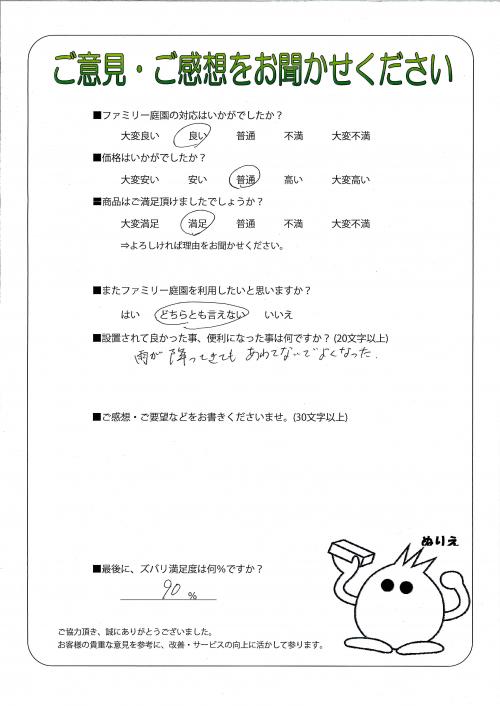 ご意見・ご感想をお聞かせください
■ファミリー庭園の対応はいかがでしたか？
大変良い 良い 普通 不満 大変不満
■価格はいかがでしたか？
大変安い 安い 普通 高い 大変高い
■商品はご満足頂けましたでしょうか？
大変満足 満足 普通 不満 大変不満
⇒よろしければ理由をお聞かせください。
■またファミリー庭園を利用したいと思いますか？
はい どちらとも言えない いいえ
■設置されて良かった事、便利になった事は何ですか？(20文字以上)
雨が降ってきてもあわてないでよくなった.
■ご感想・ご要望などをお書きくださいませ。(30文字以上)
ぬりえ
■最後に、ズバリ満足度は何%ですか？
90 %
ご協力頂き、誠にありがとうございました。
お客様の貴重な意見を参考に、改善・サービスの向上に活かして参ります。